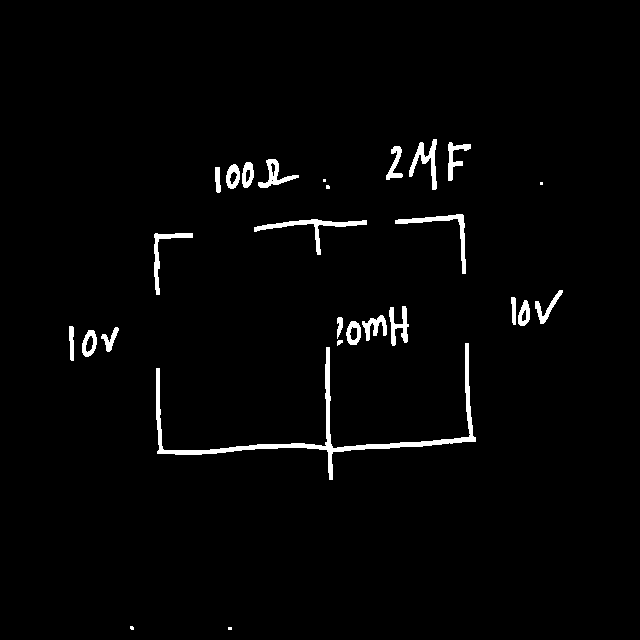 100Ω : 2MF
10v
20mH
10V